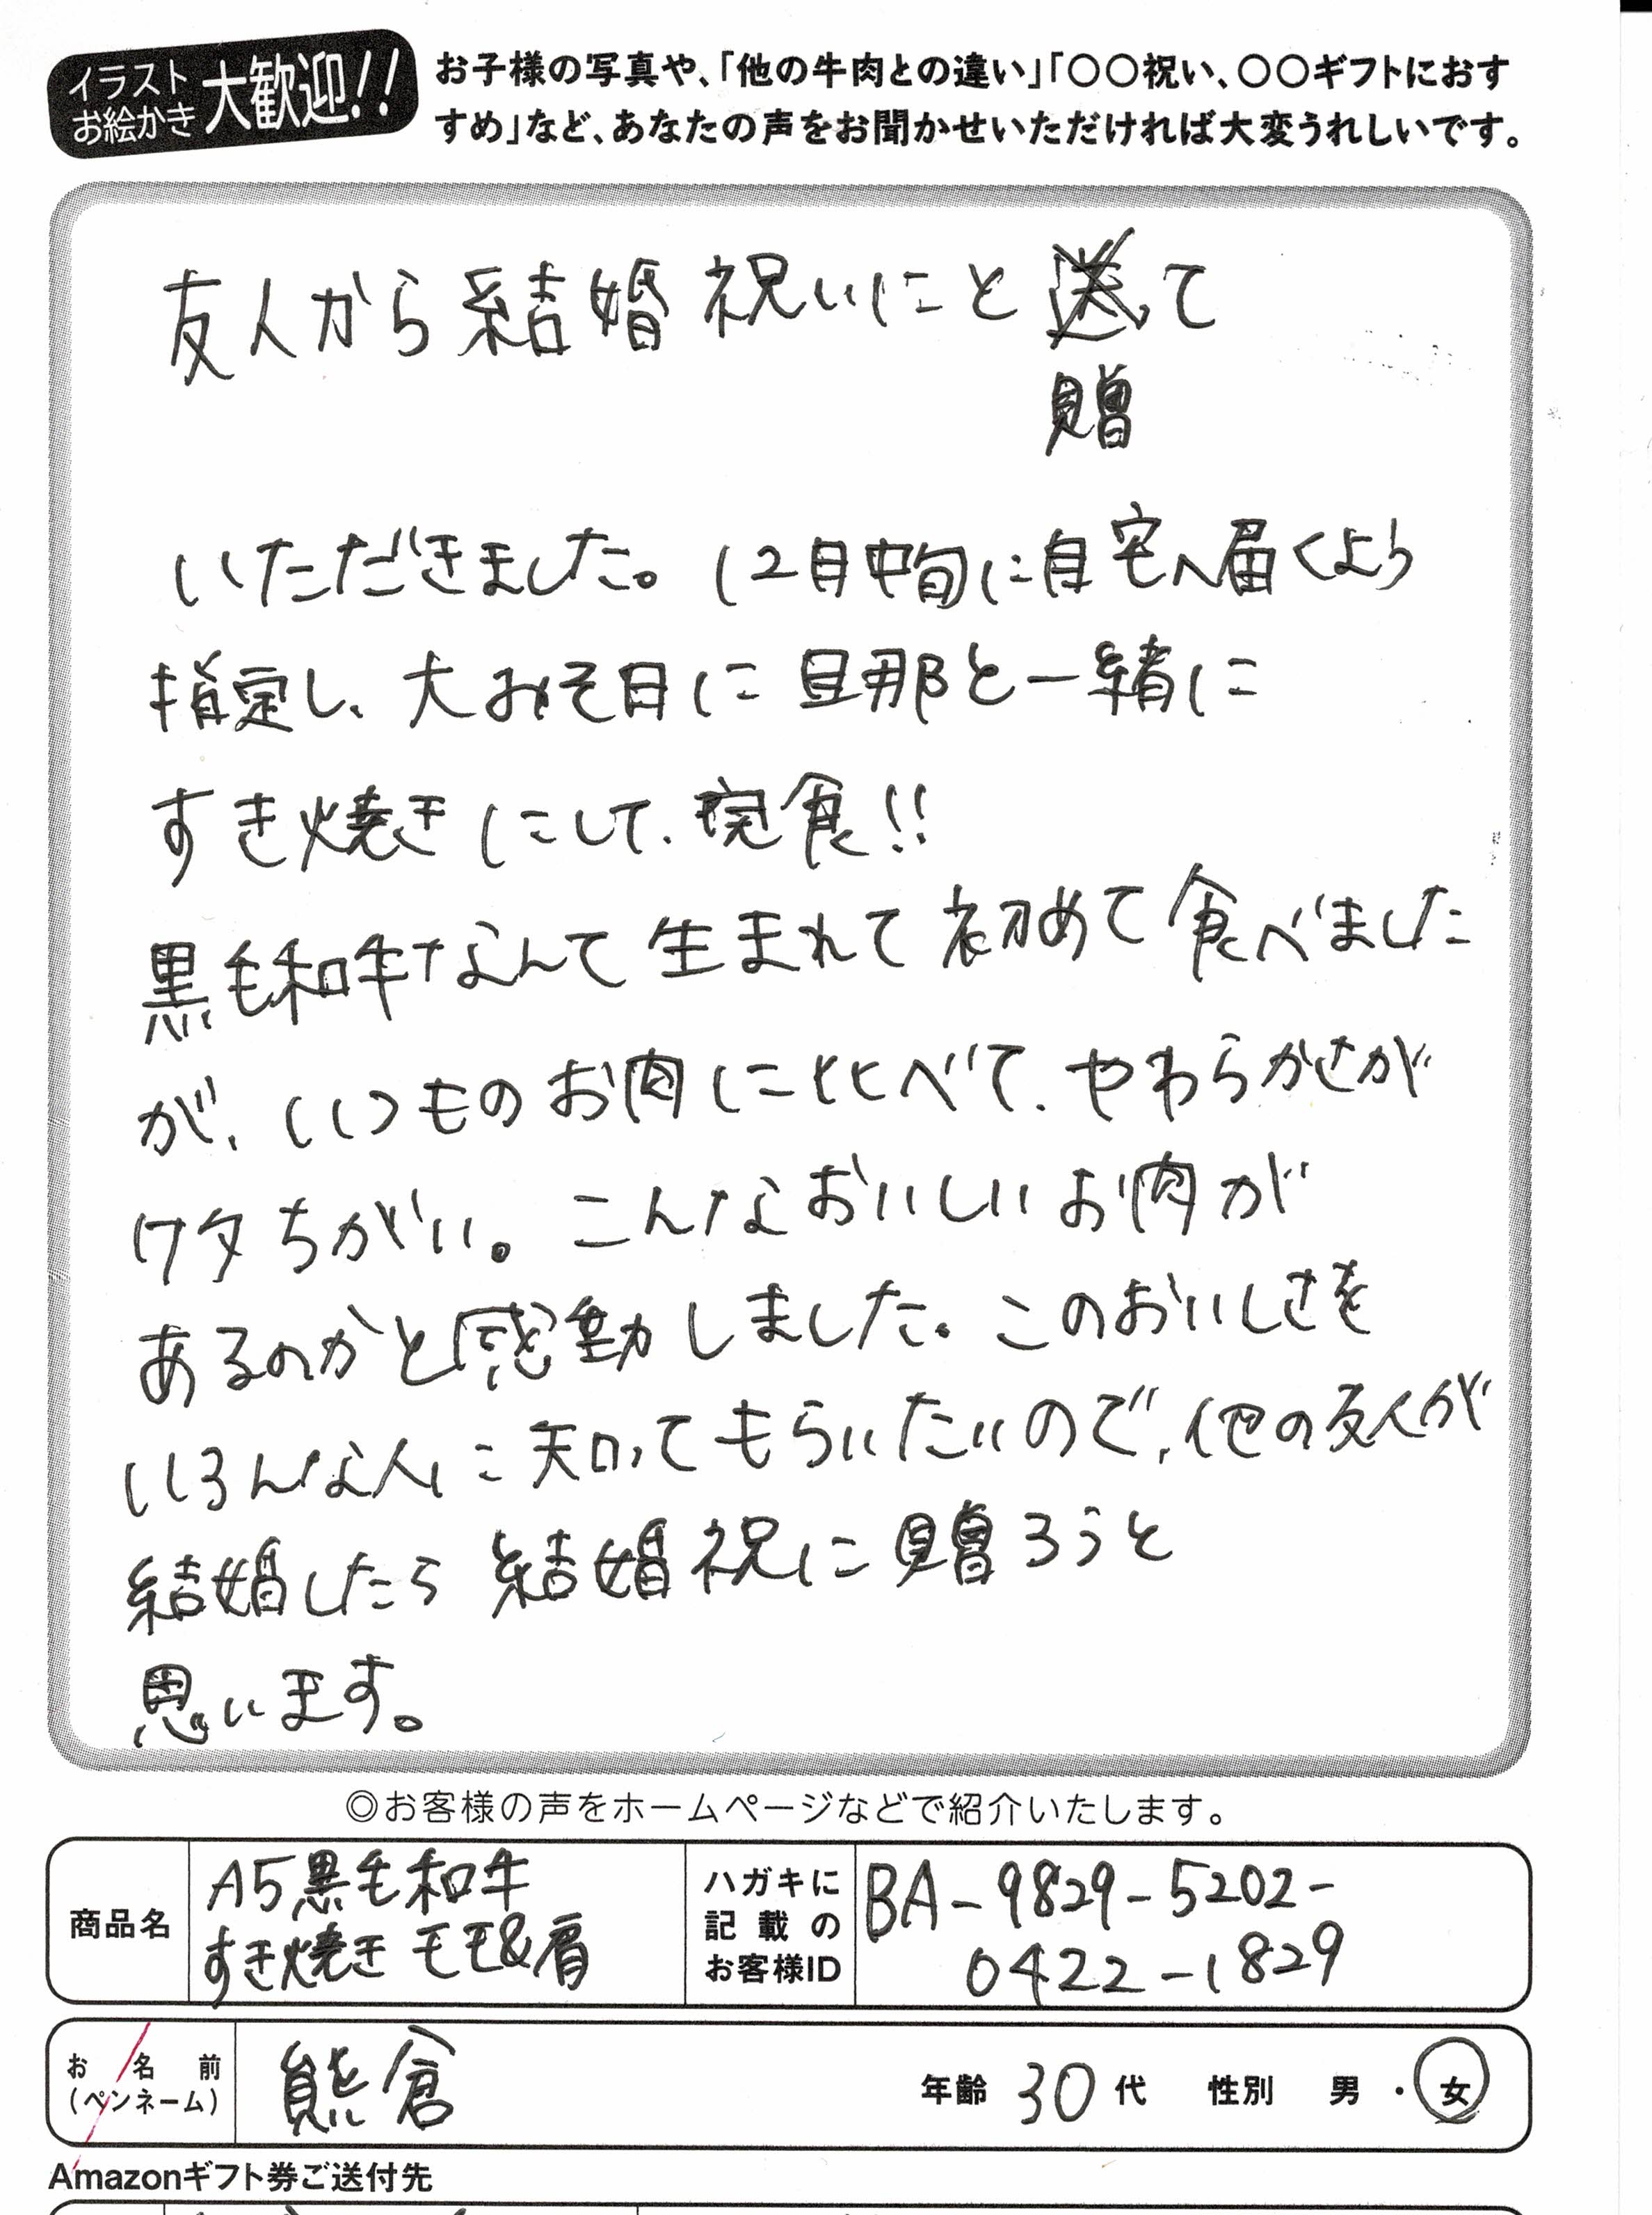 イラスト
お絵かき
大歓迎!!
お子様の写真や、「他の牛肉との違い」「〇〇祝い、〇〇ギフトにおす
すめ」など、あなたの声をお聞かせいただければ大変うれしいです。
友人から結婚祝いにと送て
贈
いただきました。12月中旬に自宅へ届くよう
指定し、大みそ日に旦那と一緒に
すき焼きにして、完食!!
黒毛和牛なんて生まれて初めて食べました
が、いつものお肉に比べて、やわらかさが
ケタちがい。こんなおいしいお肉が
あるのかと感動しました。このおいしさを
いろんな人に知ってもらいたいので、他の友人が
結婚したら結婚祝に贈ろうと
思います。
◎お客様の声をホームページなどで紹介いたします。
商品名
A5黒毛和牛
すき焼き モモ&肩
ハガキに
記載の
お客様ID
BA-9829-5202-
0422-1829
お名前
(ペンネーム)
熊倉
年齢 30代 性別 男・女
Amazonギフト券ご送付先